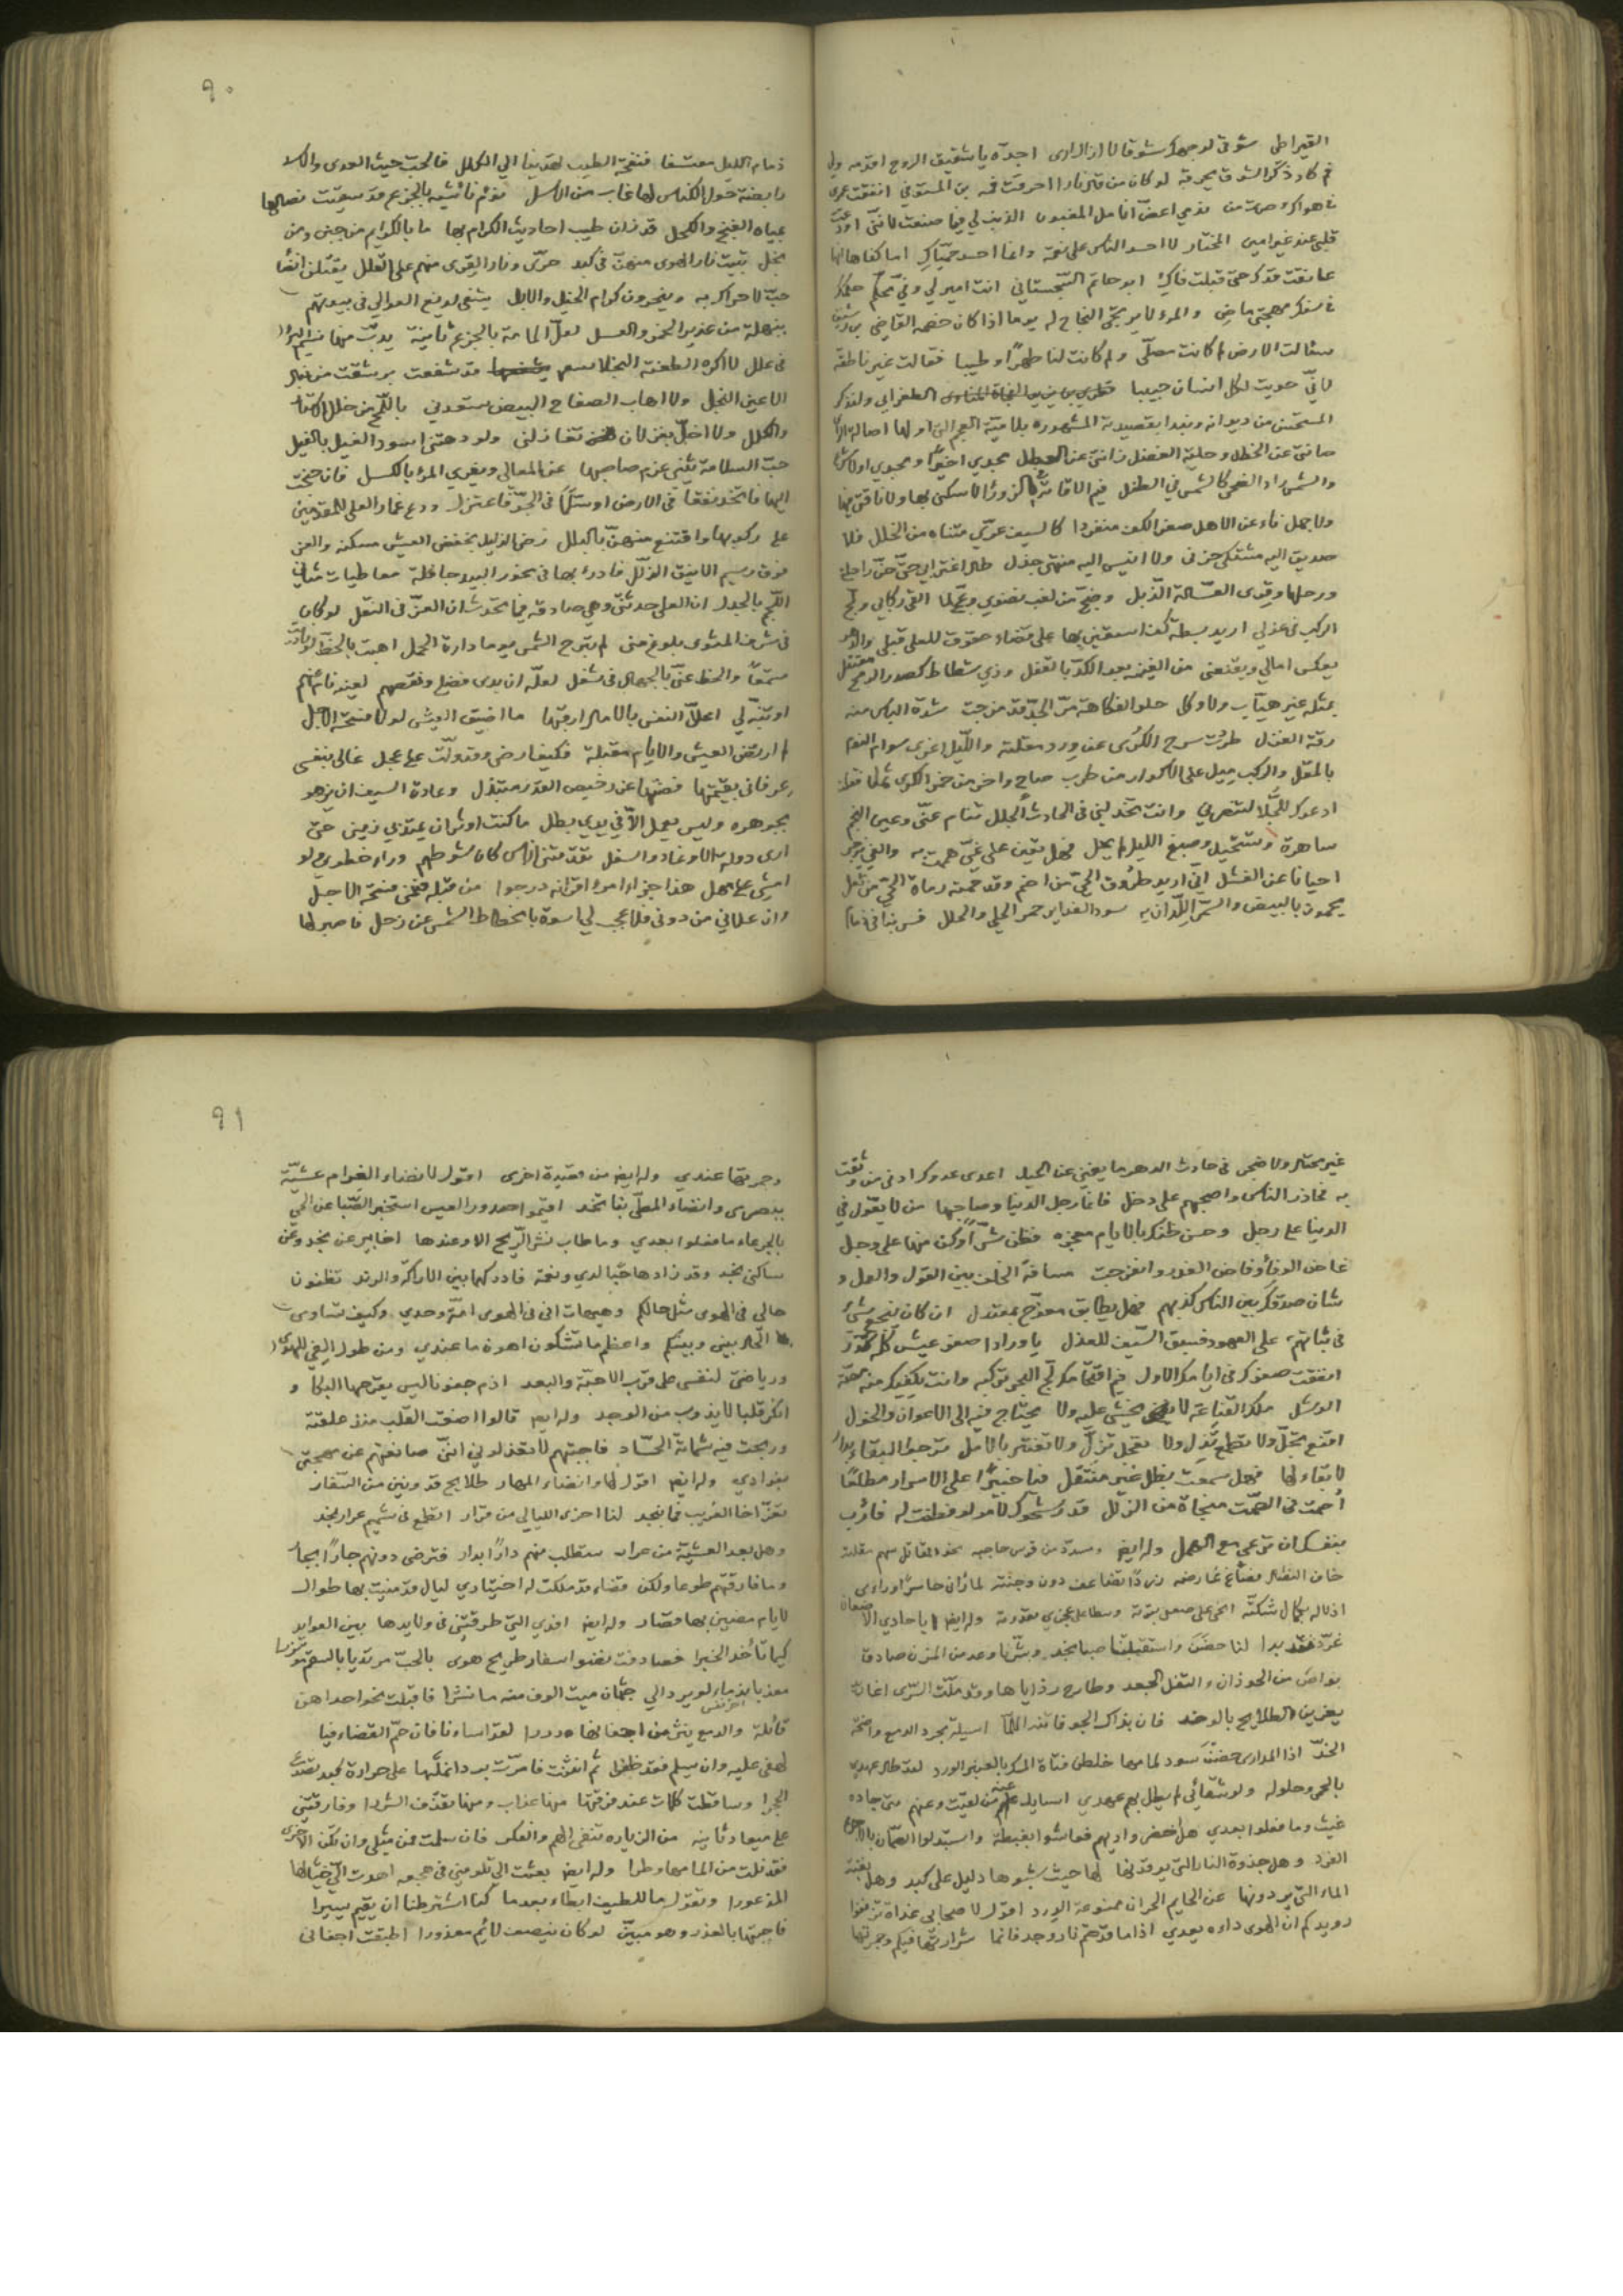 القيراطي شوقي لوجهك شوقا لا ازال ارى اجدّه يا شقيق الروح اقدمه ولي
فم كاد ذكر الشوق يحرقه لو كان من قال نارا احرقت فمه بن المستوفي انفقت عمري
في هواك وصرت من ندمي اعضّ انامل المغبون الذنب لي فيما صنعت لانني اودعت
قلبي عند غير امين المختار لا احسد الناس على نعمة وانما احسد حمّياك اما كفاها انها
عانقت قدك حتى قبلت فاك ابو حاتم السجستاني انت امير لي وفيّ محكم حكمك
في سفك مهجتي ماض والمرء لا يرتجي النجاح له يوما اذا كان خصمه القاضي بن رشيق
سألت الارض لم كانت مصلّى ولم كانت لنا طهرا وطيبا فقالت غير ناطقة
لاني حويت لكل انسان حبيبا الطغرايي ولنذكر
المستحسن من ديوانه ونبدا بقصيدته المشهورة بلامية العجم التي اولها اصالة الراي
صانتني عن الخطل وحلية الفضل زانتني عن العطل مجدي اخيرا ومجدي اولا شرع
والشمس راد الضحى كالشمس في الطفل فيم الاقامة بالزوراء لا سكني بها ولا ناقتي فيها
ولا جملي ناء عن الاهل صفر الكف منفردا كالسيف عرّي متناه من الخلل فلا
صديق اليه مشتكى حزني ولا انيس اليه منتهى جذلي طال اغترابي حتى حنّ راحلتي
ورحلها وقرى العسالة الذبل وضجّ من لغب نضوي وعجّ لما القى ركابي ولجّ
الركب في عذلي اريد بسطة كف استعين بها على قضاء حقوق للعلى قبلي والدهر
يعكس امالي ويقنعني من الغنيمة بعد الكدّ بالقفل وذي شطاط كصدر الرمح معتقل
بمثله غير هيّاب ولا وكل حلو الفكاهة مرّ الجدّ قد مزجت شدة الباس منه
رقة الغزل طردت سرح الكرى عن ورد مقلته والليل اغرى سوام النوم
بالمقل والركب ميل على الاكوار من طرب صاح واخر من خمر الكرى ثمل فقلت
ادعوك للجلّا لتنصرني وانت تخذلني في الحادث الجلل تنام عني وعين النجم
ساهرة وتستحيل وصبغ الليل لم يحل فهل تعين على غيّ هممت به والغي يزجر
احيانا عن الفشل اني اريد طروق الحي من اضم وقد حمته رماة الحي من ثعل
يحمون بالبيض والسمر اللدان به سود الغداير حمر الحلي والحلل فسر بنا في ذمام
٩٠
ذمام الليل معتسفا فنفحة الطيب تهدينا الي الحلل فالحب حيث العدى والاسد
رابضة حول الكناس لها غاب من الاسل نؤم ناشئة بالجزع قد سقيت نصالها
بمياه الغنج والكحل قد زان طيب احاديث الكرام بها ما بالكرايم من جبن ومن
بخل تبيت نار الهوى منهن في كبد حرّى ونار القرى منهم على القلل يقتلن انضا
حبّ لا حراك به وينحرون كرام الخيل والابل يشفى لديغ العوالي في بيوتهم
بنهلة من غدير الخمر والعسل لعل المامة بالجزع ثانية يدبّ منها نسيم البرء
في علل لا اكره الطعنة النجلا قد شفعت برشقة من نبال
الاعين النجل ولا اهاب الصفاح البيض تسعدني باللمح من خلل الاستار
والكلل ولا اخلّ بغزلان تغازلني ولو دهتني اسود الغيل بالغيل
حبّ السلامة يثني عزم صاحبها عن المعالي ويغري المرء بالكسل فان جنحت
اليها فاتخذ نفقا في الارض او سلّما في الجوّ فاعتزل ودع غمار العلى للمقدمين
على ركوبها واقتنع منهن بالبلل رضى الذليل بخفض العيش مسكنه والعز
عند رسيم الاينق الذلل فادرأ بها في نحور البيد جافلة معارضات مثاني
اللجم بالجدل ان العلى حدثتني وهي صادقة فيما تحدث ان العزّ في النقل لو كان
في شرف المثوى بلوغ منى لم تبرح الشمس يوما دارة الحمل اهبت بالحظ لو ناديت
مستمعا والحظ عني بالجهال في شغل لعله ان بدى فضلي ونقصهم لعينه نام عنهم
او تنبّه لي اعلّل النفس بالامال ارقبها ما اضيق العيش لولا فسحة الامل
لم ارتض العيش والايام مقبلة فكيف ارضى وقد ولّت على عجل غالى بنفسي
عرفاني بقيمتها فصنتها عن رخيص القدر مبتذل وعادة السيف ان يزهو
بجوهره وليس يعمل الّا في يدي بطل ما كنت اوثر ان يمتد بي زمني حتى
ارى دولة الاوغاد والسفل تقدمتني اناس كان شوطهم وراء خطوي لو
امشي على مهل هذا جزاء امرء اقرانه درجوا من قبله فتمنى فسحة الاجل
وان علاني من دوني فلا عجب لي اسوة بانحطاط الشمس عن زحل فاصبر لها
غير محتال ولا ضجر في حادث الدهر ما يغني عن الحيل اعدى عدوك ادنى من وثقت
به فحاذر الناس واصحبهم على دخل فانما رجل الدنيا وصاحبها من لا يعوّل في
الدنيا على رجل وحسن ظنك بالايام معجزه فظن شرّا وكن منها على وجل
غاض الوفا وفاض الغدر وانفرجت مسافة الخلف بين القول والعمل و
شان صدقك بين الناس كذبهم فهل يطابق معوج بمعتدل ان كان ينجع شيء
في ثباتهم على العهود فسبق السيف للعذل يا واردا صفو عيش كلّه كدر
انفقت صفوك في ايامك الاول فيم اقتحامك لجّ البحر تركبه وانت يكفيك منه مصّة
الوشل ملك القناعة لا يخشى عليه ولا يحتاج فيه الى الاعوان والخول
اقنع تجلّ ولا تطمع تذل ولا تعجل تزل ولا تغتر بالامل ترجو البقاء بدار
لا بقاء لها فهل سمعت بظل غير منتقل فيا خبيرا على الاسرار مطلعا
اصمت ففي الصمت منجاة من الزلل قد رشحوك لامر لو فطنت له فاربأ
بنفسك ان ترعى مع الهمل وله ايضا ومسدد من قوس حاجبه نحو المقاتل سهم مقلته
اذلاله بكمال شكته انحى على ضعفي بقوته وسطا على عجزي بقدرته وله ايضا ايا حادي الاضعان
غرّد فقد بدا لنا حضن واستقبلتنا صبا نجد وبشرنا وعد من المزن صادق
الخدّ اذا المدارى حضنّ سود لمامها خلطن فتاة المسك بالعنبر الورد لقد طال عهدي
بالحمى وحلوله ولو شفائي لم يطل بهم عهدي اسايل عنهم من لقيت وعنهم متى جاده
غيث وما فعلوا بعدي هل اخضر واديهم فعاشوا بغبطة واستبدلوا الصمان بالاجرع
الفرد وهل جذوة النار التي يوقدونها لها حيث شبوها دليل على كبد وهل نغبة
الماء التي يردونها عن الحايم الحران ممنوعة الورد اقول لاصحابي غداة ترنموا
رويدكم ان الهوى داءه يعدي اذا ما قدحتم نار وجد فانما شرارتها فيكم وجمرتها
٩١
وجمرتها عندي وله ايضا من قصيدة اخرى اقول لانضاء الغرام عشية
بالجرعاء ما فعلوا بعدي وما طاب نشر الريح الا وعندها اخابير عن نجد وعن
ساكني نجد وقد زادها حبّا لدي ونعمة فادركها بين الاراكة والرند تظنون
حالي في الهوى مثل حالكم وهيهات اني في الهوى امّة وحدي وكيف تساوى
الحال بيني وبينكم واعظم ما تشكون اهون ما عندي ومن طول الفي للهوى
ورياضتي لنفسي على قرب الاحبة والبعد اذم جفونا ليس يقرحها البكا و
انكر قلبا لا يذوب من الوجد وله ايضا قالوا اضعت القلب منذ علقته
وربحت فيه شماتة الحساد فاجبتهم لا تعذلوني انني صانعتهم عن مهجتي
بفؤادي وله ايضا اقول لها وانضاء المهار طلايح قد ونين من السفار
تعزّ اخا الغريب فما بنجد لنا اخرى الليالي من قرار اتطمع في شميم عرار نجد
وهل بعد العشية من عرار ستطلب منهم دارا بدار فترضى دونهم جارا بجار
وما فارقتهم طوعا ولكن قضاء قد ملكت له اختياري ليال قد منيت بها طوال
لايام مضين بها قصار وله ايضا افدي التي طرقتني في ولايدها بين العوايد
كيما تأخذ الخبرا فصادفت نضو اسفار طريح هوى بالحب مرتديا بالسقم مؤتزرا
قائلة والدمع ينثر من اجفانها دررا لقد اساءنا فان حمّ القضاء فيا
لهفي عليه وان يسلم فقد ظفرا ثم انثنت فامرّت برد انملها على حرارة كبد تقدّت
الجمرا وساقطت كلمات عند فرقتها منها عذاب ومنها تقذف الشررا وفارقتني
على ميعاد ثانية من الزيارة تنفي الهم والفكر فان سلمت فمن مثلي وان تكن الاخرى
فقد نلت من المامها وطرا وله ايضا بعثت الي تلومني في هجعه اهدت الي خيالها
المذعورا وتقول ما للطيف ابطاء بعدما كنا اشترطنا ان يقيم يسيرا
فاجبتها بالعذر وهو مبين لو كان ينصف لائم معذورا اطبقت اجفاني